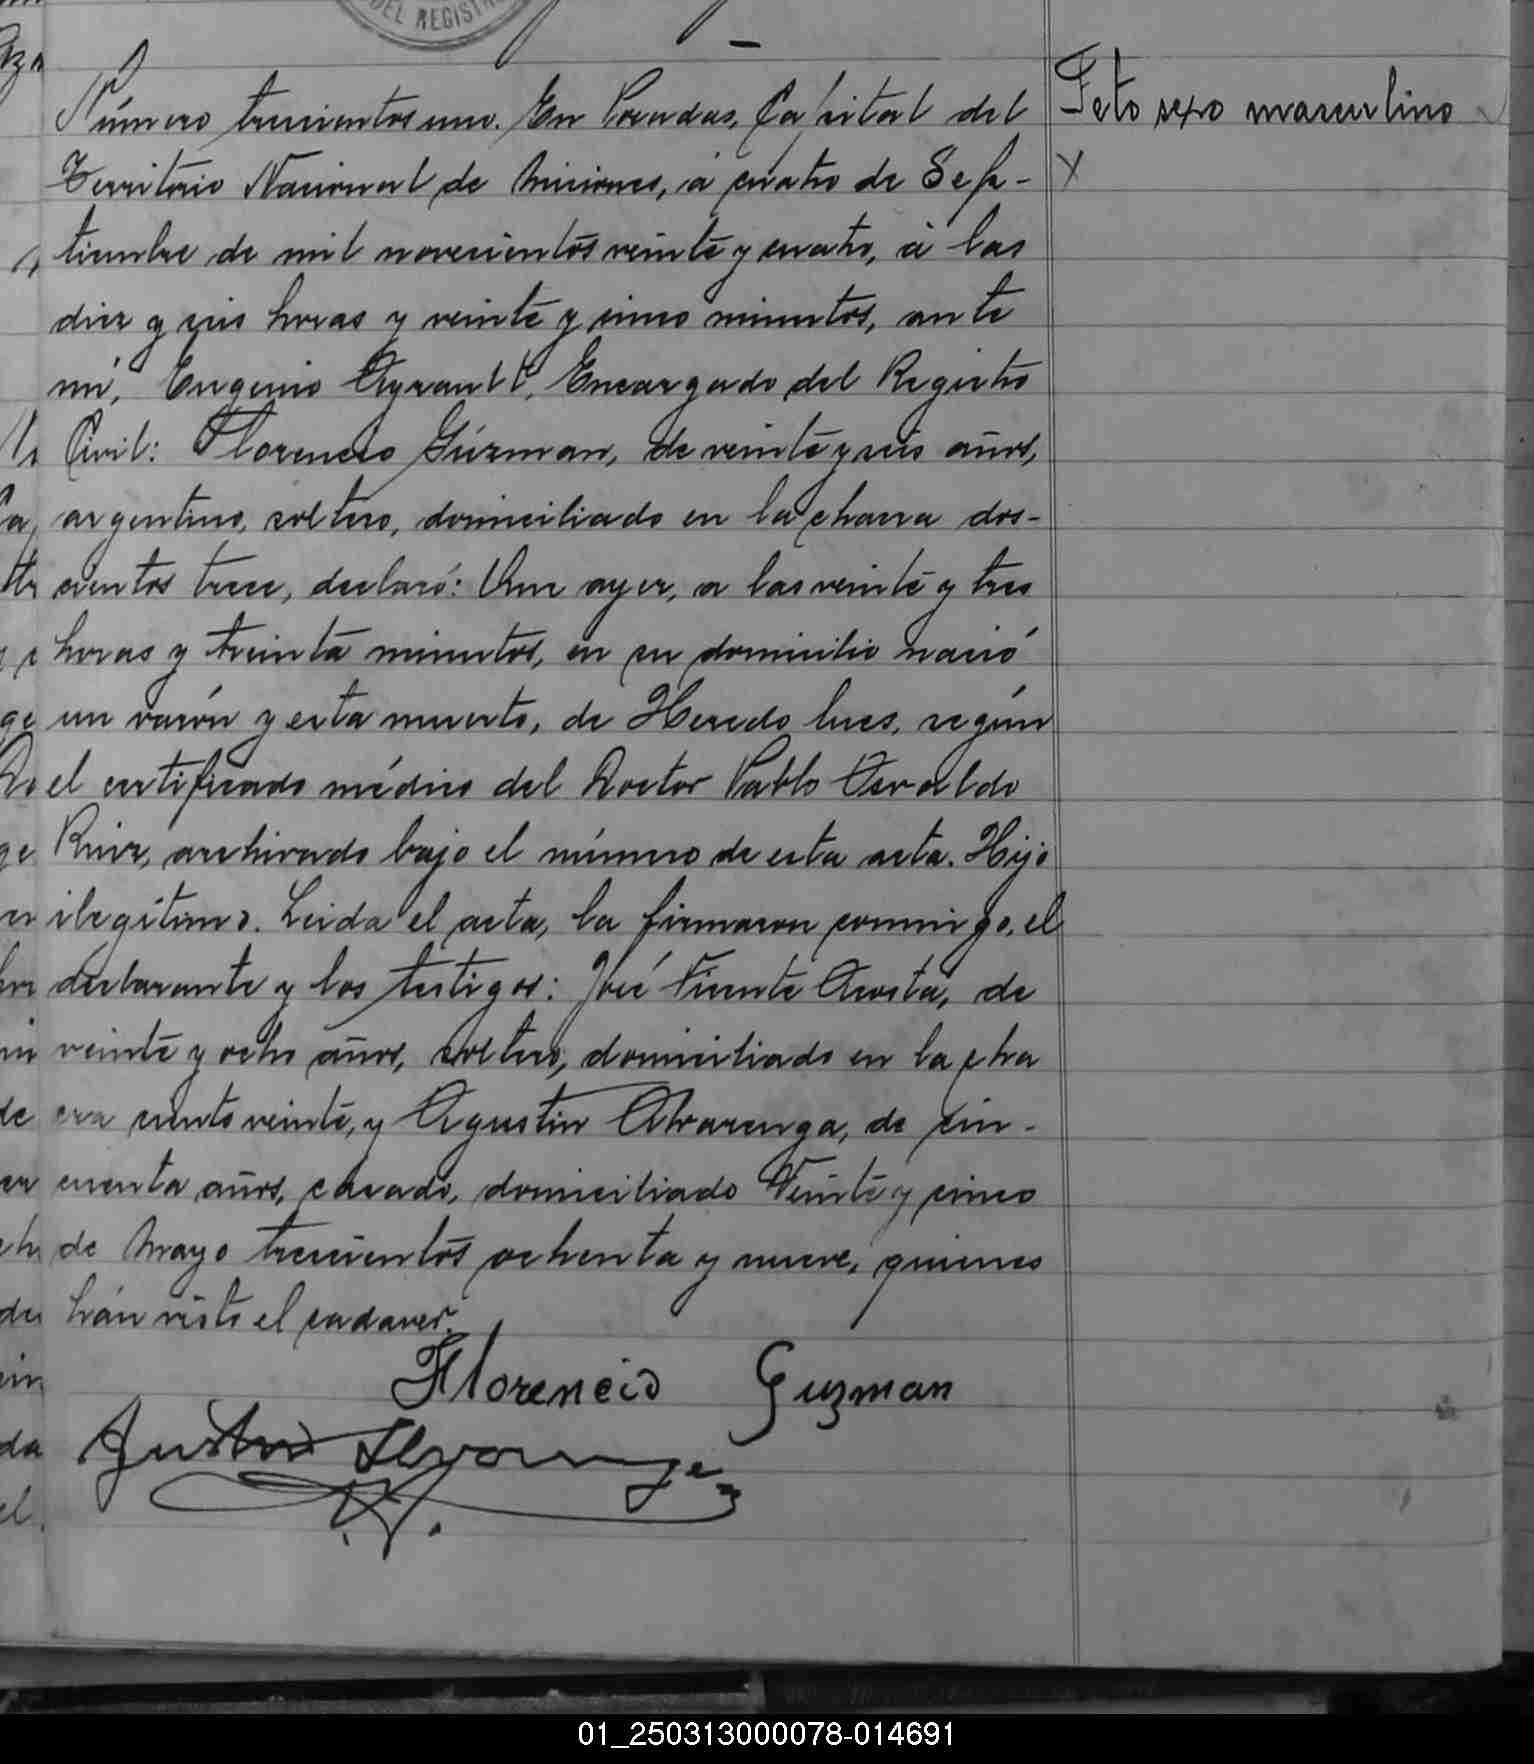 DEL REGIS
Feto sexo masculino
Número trescientos uno. En Posadas, Capital del
Territorio Nacional de Misiones, á cuatro de Sep-
tiembre de mil novecientos veinte y cuatro, á las
diez y seis horas y veinte y cinco minutos, ante
mí, Eugenio Ayrault, Encargado del Registro
Civil: Florencio Gúzman, de veinte y seis años,
argentino, soltero, domiciliado en la chacra dos-
cientos trece, declaró: Que ayer, a las veinte y tres
horas y treinta minutos, en su domicilio nació
un varón y esta muerto, de Heredo lues, según
el certificado médico del Doctor Pablo Osvaldo
Ruiz, archivado bajo el número de esta acta. Hijo
ilegítimo. Leida el acta, la firmaron conmigo, el
declarante y los testigos: José Vicente Acosta, de
veinte y ocho años, soltero, domiciliado en la cha
cra ciento veinte, y Agustin Alvarenga, de cin-
cuenta años, casado, domiciliado Veinte y cinco
de Mayo trescientos ochenta y nueve, quienes
hán visto el cadaver.
Florencio Guzman
01_250313000078-014691